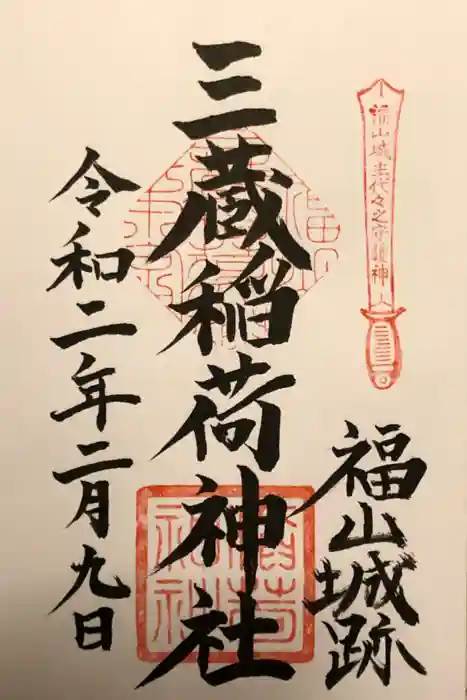 福山城主代々之守護神
福山城跡
三蔵稲荷神社
令和二年二月九日